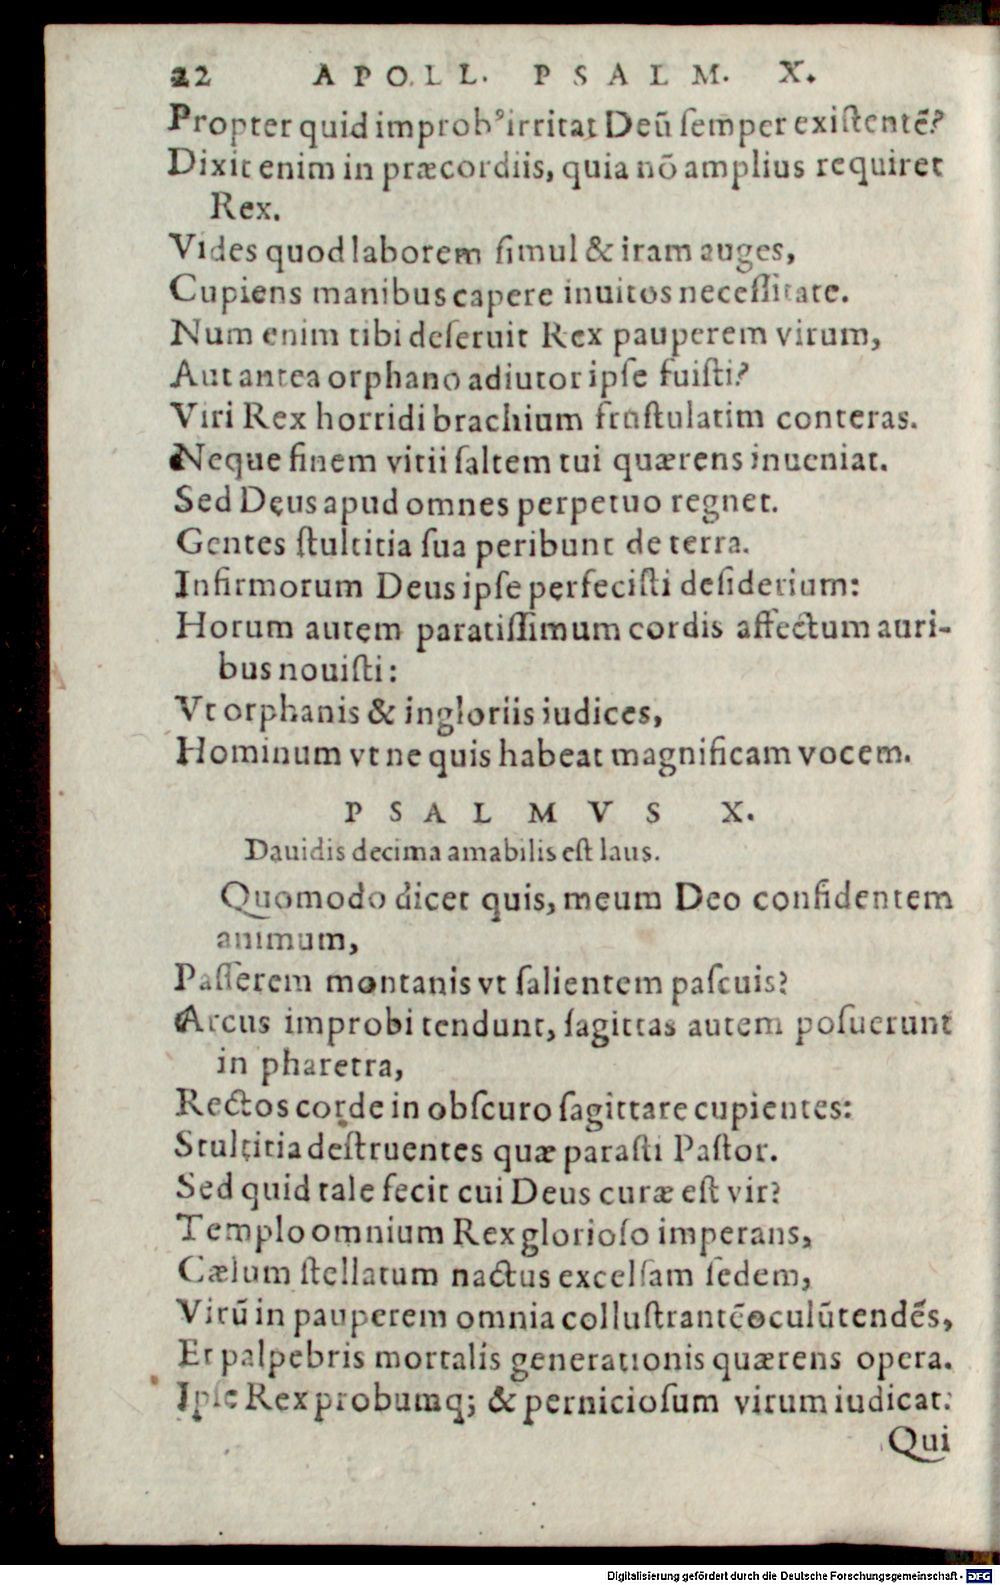 22 APOLL. PSALM. X.
Propter quid improbꝰ irritat Deũ ſemper exiſtentẽ?
Dixit enim in præcordiis, quia nõ amplius requiret
Rex.
Vides quod laborem ſimul & iram auges,
Cupiens manibus capere inuitos neceſſitate.
Num enim tibi deſeruit Rex pauperem virum,
Aut antea orphano adiutor ipſe fuiſti?
Viri Rex horridi brachium fruſtulatim conteras.
Neque finem vitii ſaltem tui quærens inueniat.
Sed Deus apud omnes perpetuo regnet.
Gentes ſtultitia ſua peribunt de terra.
Infirmorum Deus ipſe perfeciſti deſiderium:
Horum autem paratiſſimum cordis affectum auri-
bus nouiſti:
Vt orphanis & ingloriis iudices,
Hominum vt ne quis habeat magnificam vocem.
PSALMVS X.
Dauidis decima amabilis eſt laus.
Quomodo dicet quis, meum Deo confidentem
animum,
Paſſerem montanis vt ſalientem paſcuis?
Arcus improbi tendunt, ſagittas autem poſuerunt
in pharetra,
Rectos corde in obſcuro ſagittare cupientes:
Stultitia deſtruentes quæ paraſti Paſtor.
Sed quid tale fecit cui Deus curæ eſt vir?
Templo omnium Rex glorioſo imperans,
Cælum ſtellatum nactus excelſam ſedem,
Virũ in pauperem omnia colluſtrantẽ oculũ tendẽs,
Et palpebris mortalis generationis quærens opera.
Ipſe Rex probumq; & pernicioſum virum iudicat:
Qui
Digitalisierung gefördert durch die Deutsche Forschungsgemeinschaft - DFG